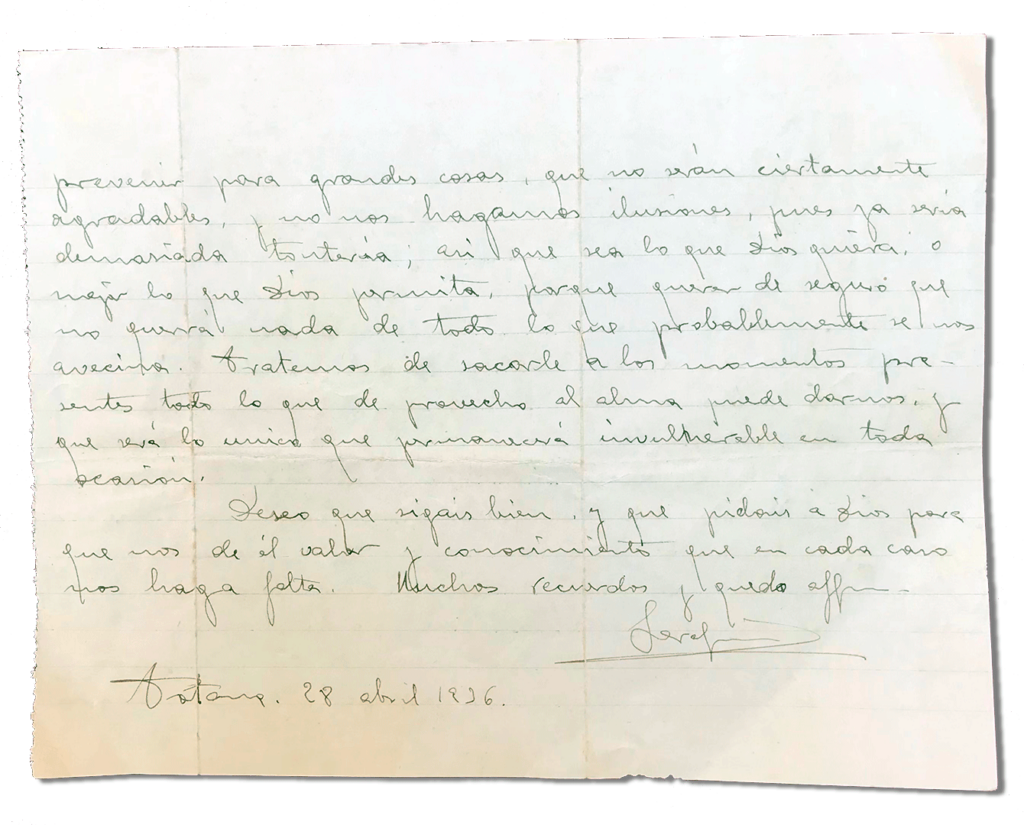 prevenir para grandes cosas, que no serán ciertamente
agradables, y no nos hagamos ilusiones, pues ya sería
demasiada tontería; asi que sea lo que Dios quiera, o
mejor lo que Dios permita, porque querer de seguro que
no querrá nada de todo lo que probablemente se nos
avecina. Tratemos de sacarle a los momentos pre-
sentes todo lo que de provecho al alma puede darnos, y
que será lo unico que permanecerá invulnerable en toda
ocasión.
Deseo que sigais bien, y que pidais á Dios para
que nos de él valor y conocimiento que en cada caso
nos haga falta. Muchos recuerdos y quedo affm-
Serafín
Totana. 28 abril 1936.